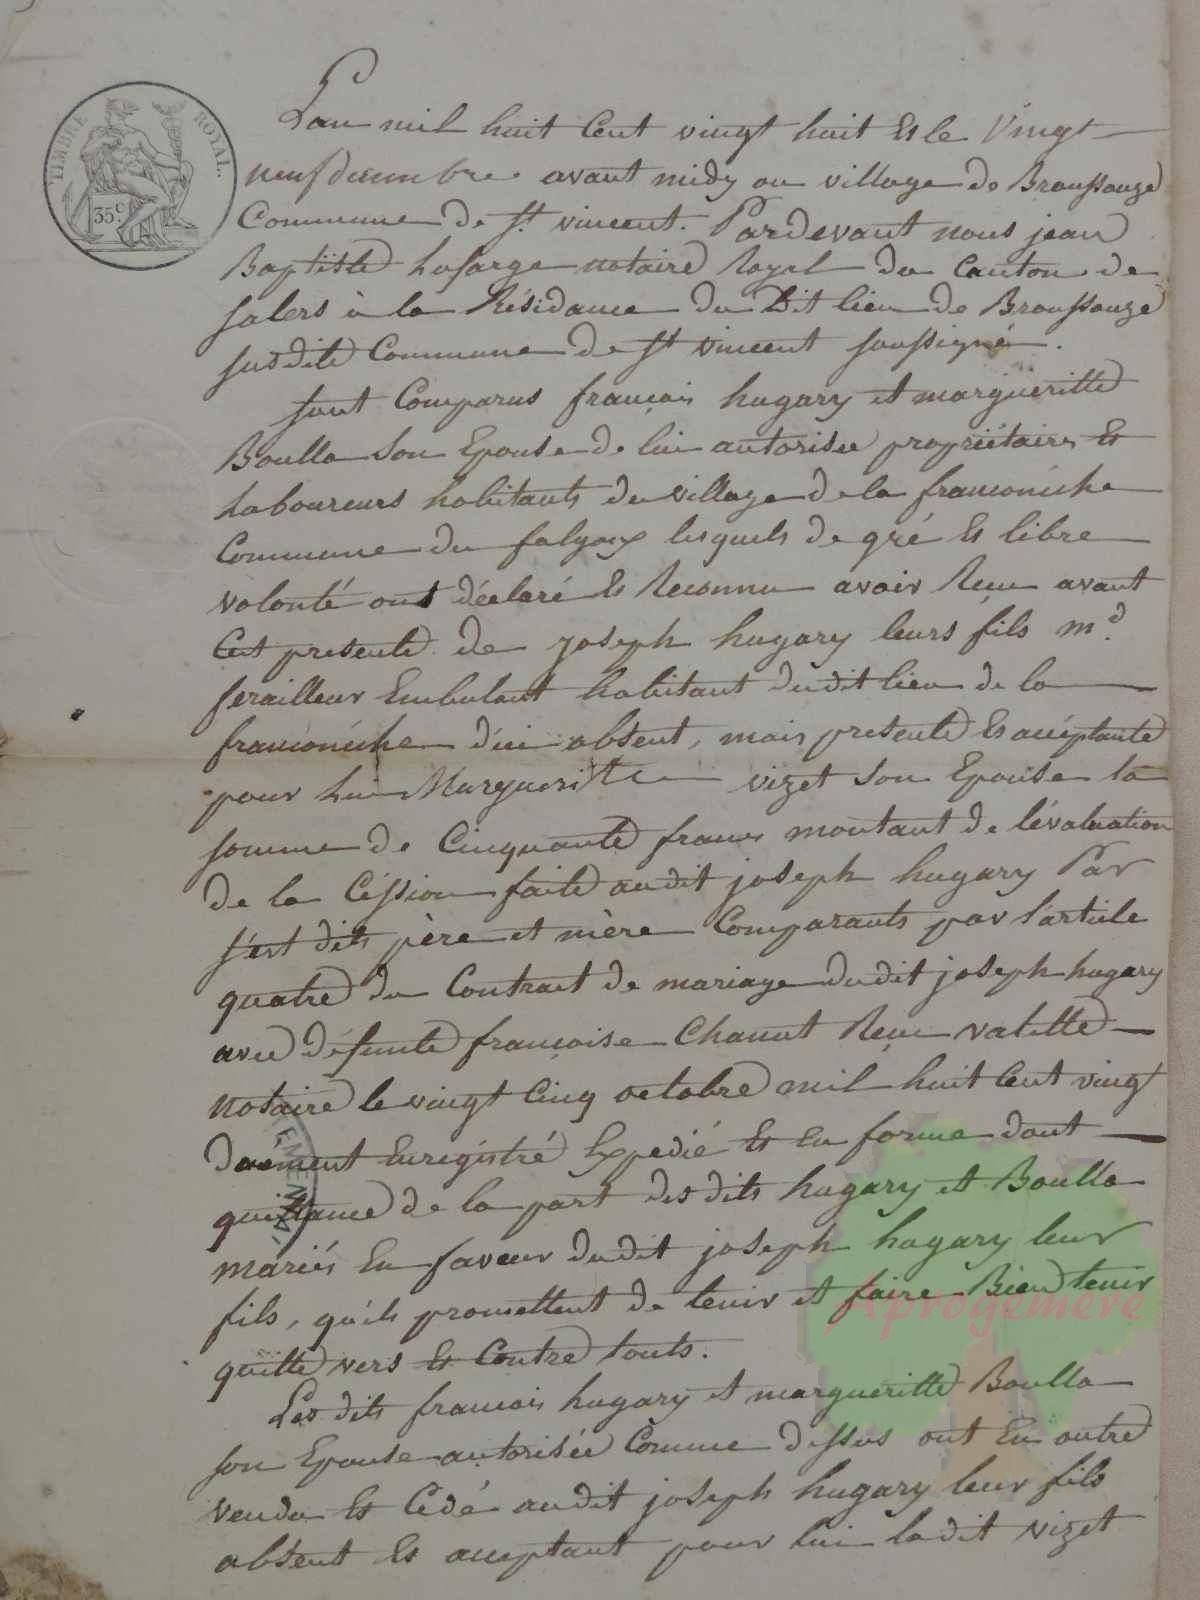 TIMBRE ROYAL.
35c
L'an mil huit Cent vingt huit Et le Vingt
neuf decembre avant midy au village de Broussouze
Commune de St. vincent. Pardevant nous jean
Baptiste Lafarge notaire Royal du Canton de
salers à la Résidance du Dit lieu de Broussouze
susdite Commune de St vincent soussigné.
sont Comparus françois hugary et margueritte
Boulla son Epouse de lui autorisée propriétaires Et
Laboureurs habitants du village de la franconéche
Commune du falgoux lesquels de gré Et libre
volonté ont déclaré Et Reconnu avoir Recu avant
Cet presente de joseph hugary leurs fils md.
ferailleur Embulant habitant dudit lieu de la
franconéche d'ici absent, mais presente Et acéptante
pour lui Marguerite vizet son Epouse la
somme de Cinquante francs montant de l'évaluation
de la Céssion faite audit joseph hugary Par
s'est dits père et mère Comparants par l'article
quatre du Contract de mariage dudit joseph hugary
avec défunte françoise Chanut Recu valette
notaire le vingt Cinq octobre mil huit Cent vingt
duement Enregistré Expedié Et En forme dont
quittance de la part des dits hugary et Boulla
mariés En faveur dudit joseph hugary leur
fils, qu'ils promettent de tenir et faire Bien tenir
quitte vers Et Contre touts.
Les dits francois hugary et margueritte Boulla
son Epouse autorisée Comme dessus ont En outre
vendu Et Cedé audit joseph hugary leur fils
absent Et acceptant pour lui ladit vizet
Aprogemere